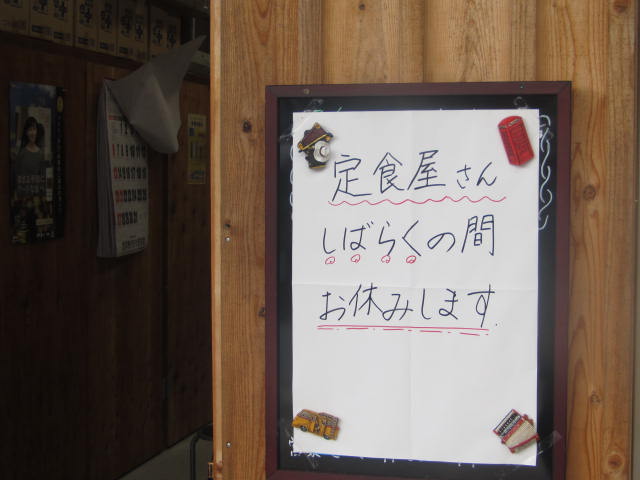 定食屋さん
しばらくの間
お休みします